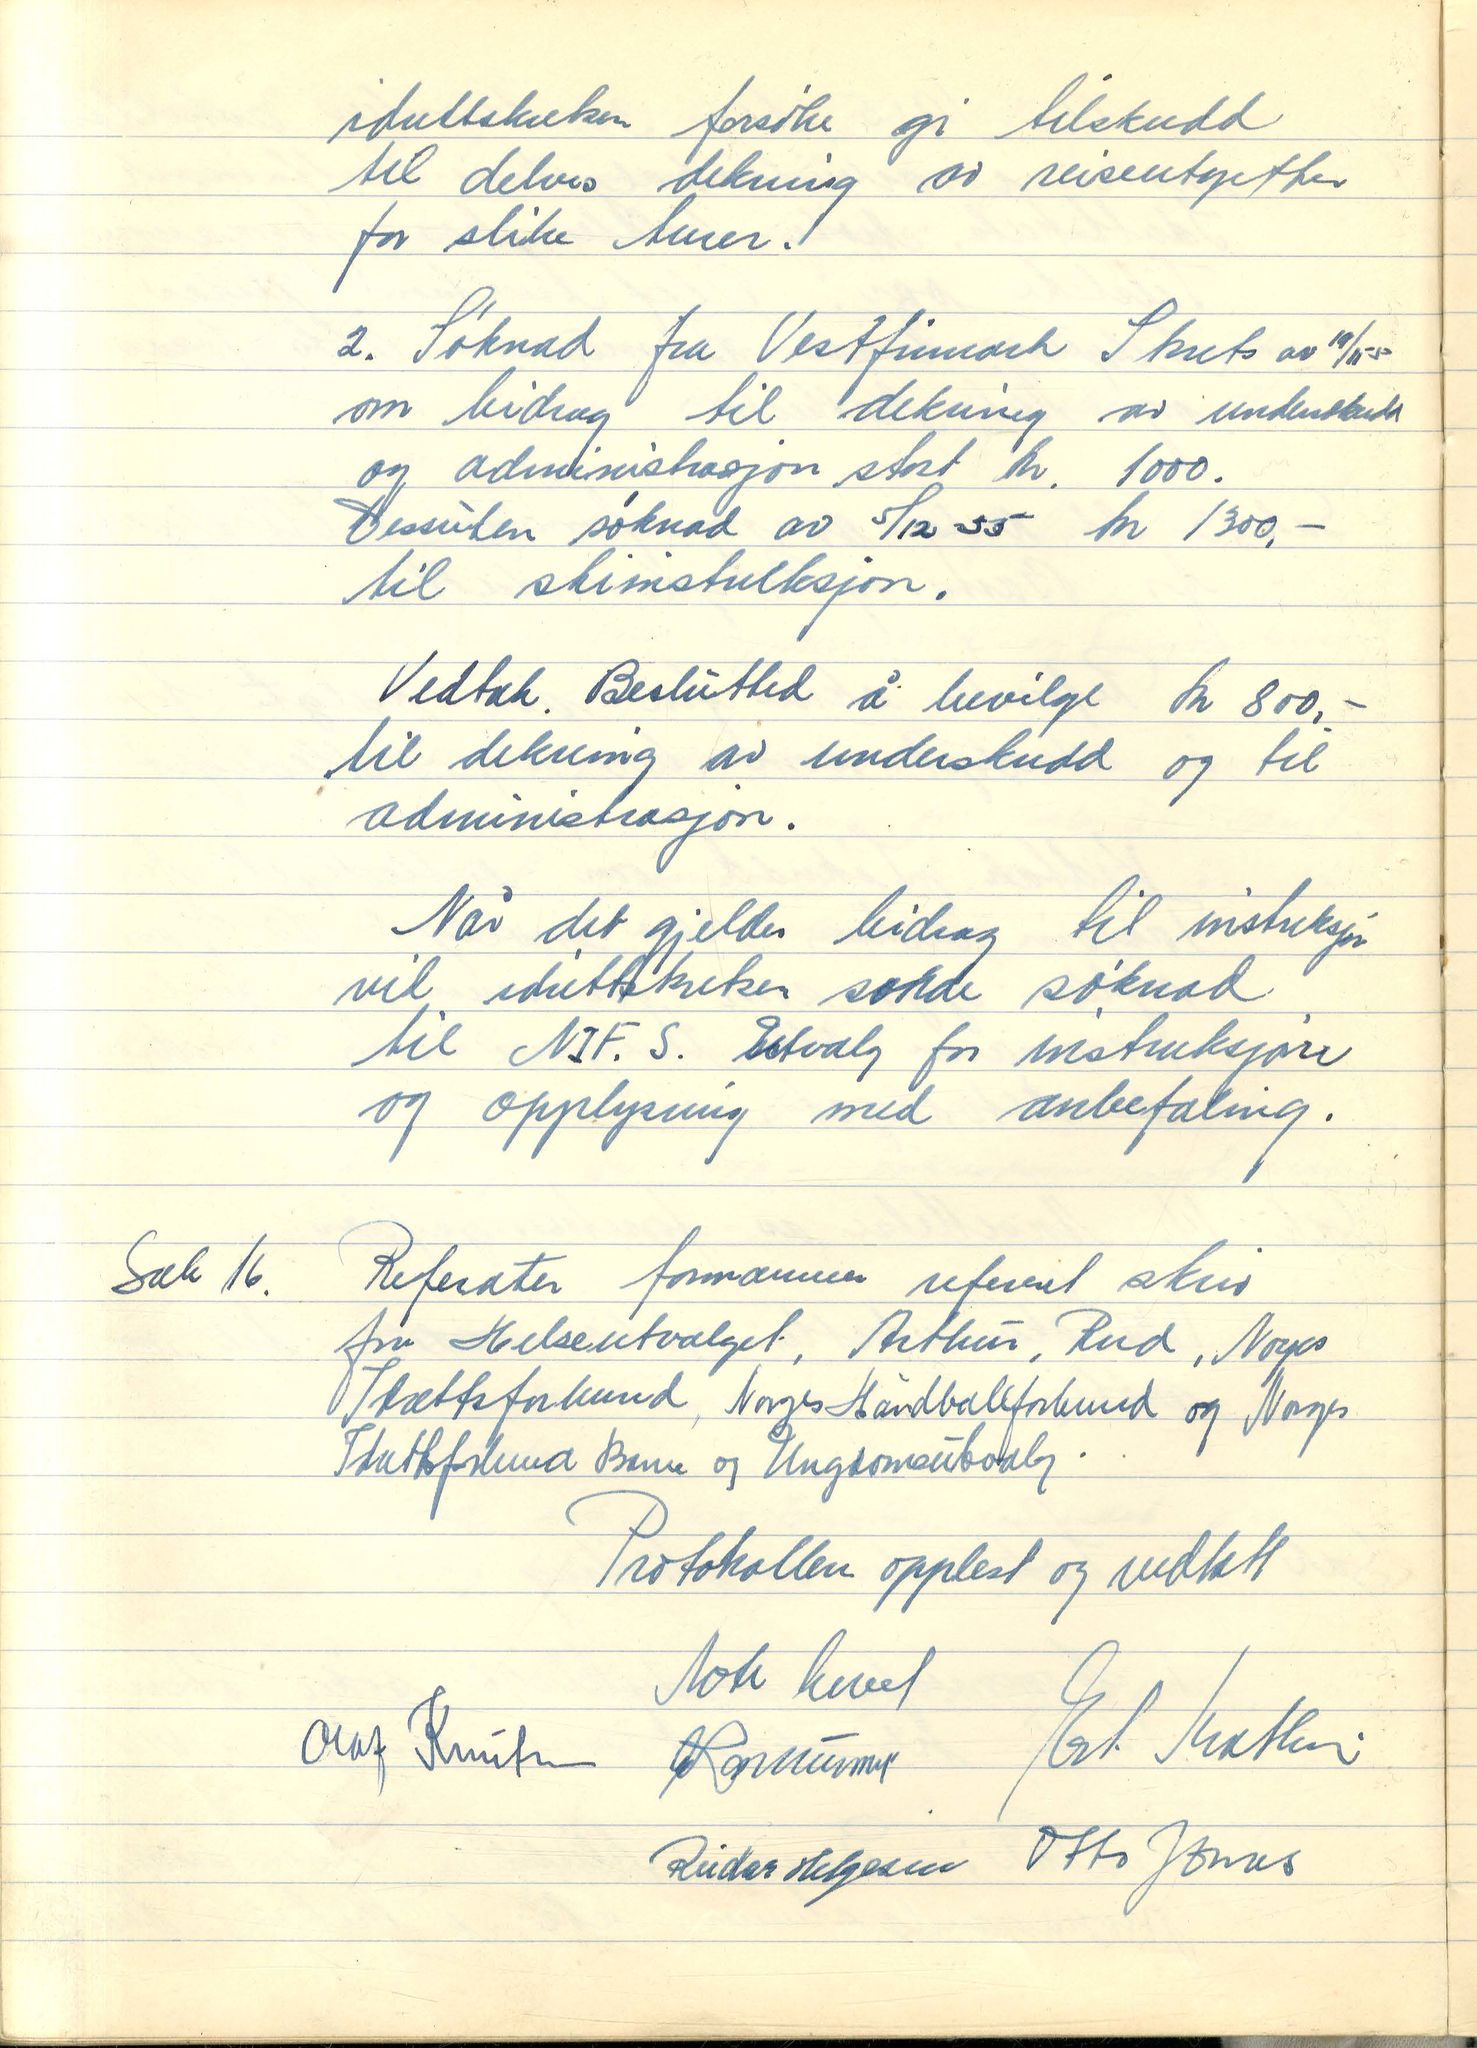 idrettskretsen forsöke gi tilskudd
til delvis dekning av reiseutgifter
for slike turer.
2. Söknad fra Vestfinmark Skrets av 19/11-55
om bidrag til dekning av underskudd
og administrasjon stort kr. 1000.
Dessuten söknad av 5/12 55 kr 1300,-
til skiinstruksjon.
Vedtak. Beslutted å bevilge kr 800,-
til dekning av underskudd og til
administrasjon.
Når det gjelder bidrag til instruksjon
vil idrettskretsen sende söknad
til N.I.F. S. Utvalg for instruksjon
og opplysning med anbefaling.
Sak 16. Referater formannen referert skriv
fra Helseutvalget, Arthur, Rud, Norges
Idrettsforbund, Norges Håndballforbund og Norges
Idrettsforbund Barne og Ungdomsutvalg.
Protokollen opplest og vedtatt
Olaf Knutsen
Reidar Helgesen Otto Jonas